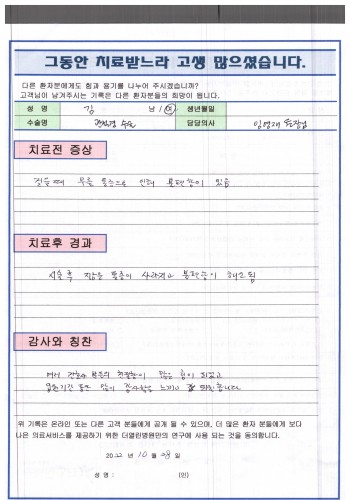 그동안 치료받느라 고생 많으셨습니다.
다른 환자분에게도 힘과 용기를 나누어 주시겠습니까?
고객님이 남겨주시는 기록은 다른 환자분들의 희망이 됩니다.
성 명 김 남 / 여 생년월일
수술명 관절경 수술 담당의사 원장님
치료전 증상
걸을때 무릎 통증으로 인해 불편함이 있음
치료후 경과
시술 후 지금은 통증이 사라지고 불편감이 해소됨
감사와 칭찬
여러 간호사 분들의 친절함이 많은 힘이 되었고
입원기간 동안 많이 감사함을 느끼고 잘 퇴원합니다.
위 기록은 온라인 또는 다른 고객 분들에게 공개 될 수 있으며, 더 많은 환자 분들에게 보다
나은 의료서비스를 제공하기 위한 더열린병원만의 연구에 사용 되는 것을 동의합니다.
2022 년 10 월 28 일
성 명 : (인)